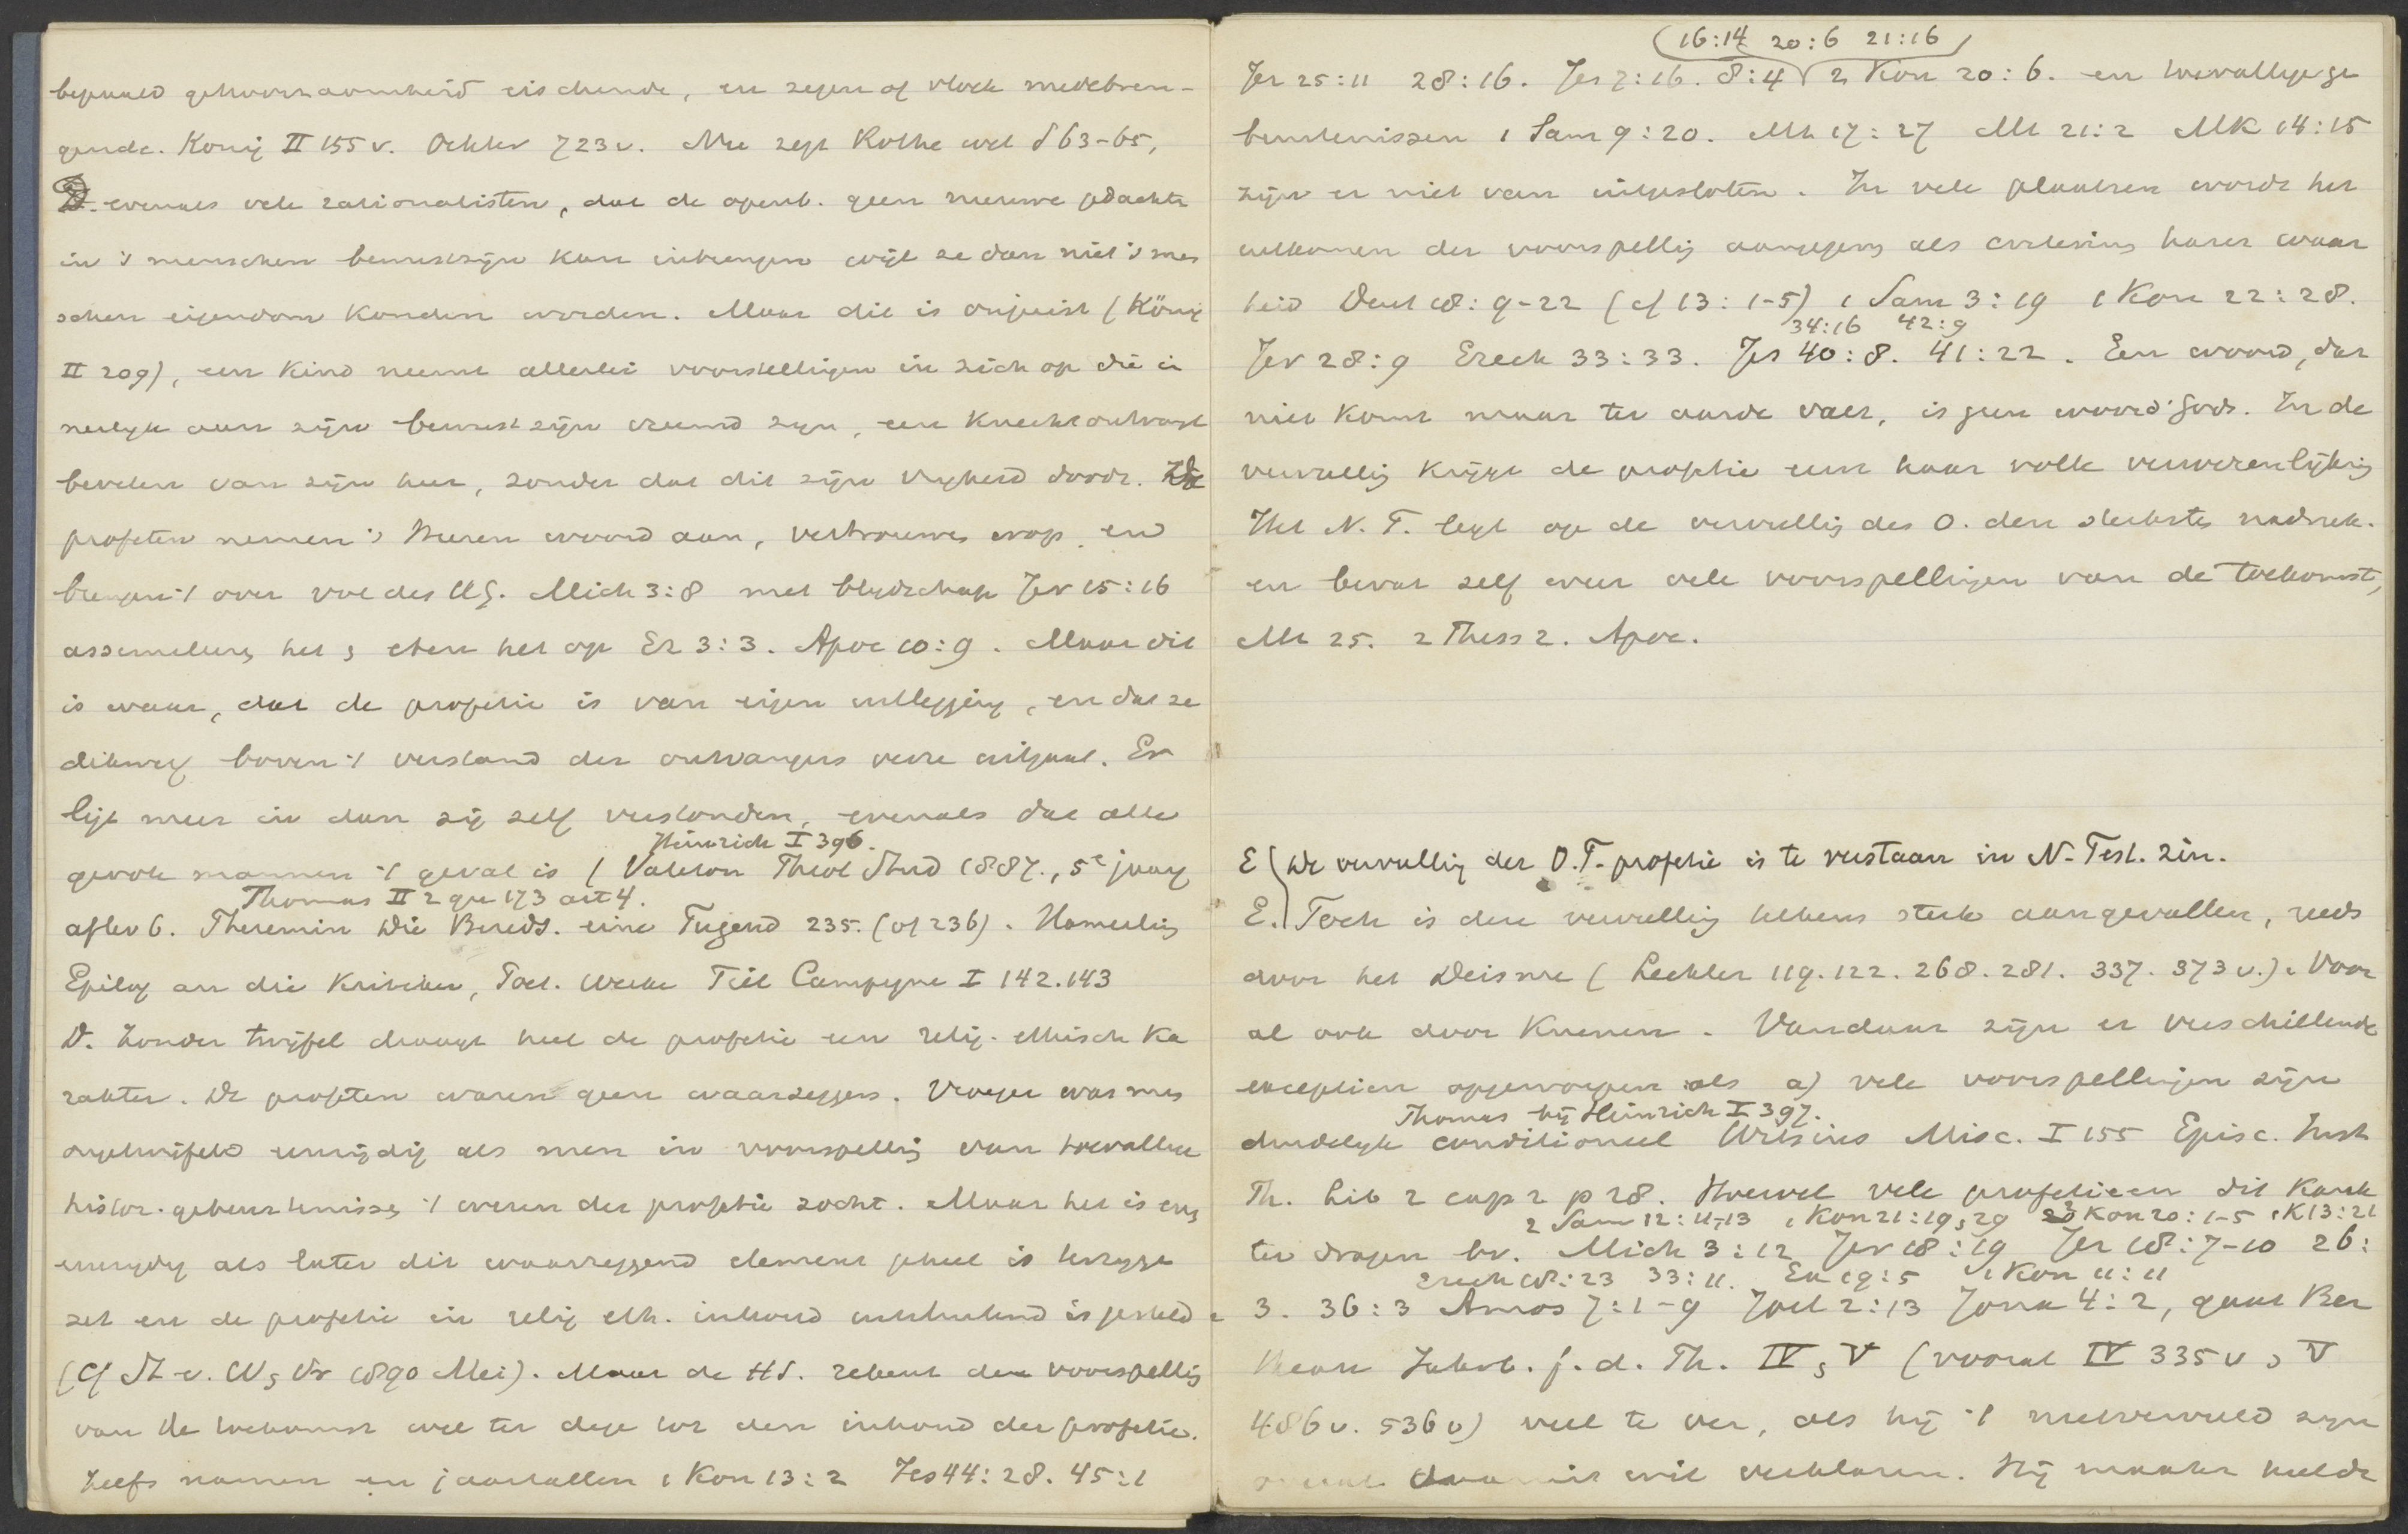 bepaald gehoorzaamheid eischende, en zegen of vloek medebren-
gende. König II 155 v. Oehler 723 v. Nu zegt Rothe wel S 63-65,
evenals vele rationalisten, dat de openb. geen nieuwe gedachte
in 's menschen bewustzijn kan inbrengen wijl ze dan niet 's men
schen eigendom konden worden. Maar dit is onjuist (König
II 209), een kind neemt allerlei voorstellingen in zich op die
aan zijn bewustzijn vreemd zijn, een knecht ontvangt
bevelen van zijn heer, zonder dat dit zijn vrijheid doodt. De
profeten nemen 's Heeren woord aan, vertrouwen erop en
brengen 't over vol des HG. Mich 3:8 met blijdschap Jer 15:16
assimileeren het, eten het op Ez 3:3. Apoc 10:9. Maar dit
is waar, dat de profetie is van eigen uitlegging, en dat ze
dikwerf boven 't verstand der ontvangers verre uitgaat. Er
ligt meer in dan zij zelf verstonden, evenals dat alle
Heinrich I 396.
groote mannen 't geval is (Valeton Theol Stud 1887., 5e jaarg
Thomas II 2 qu 173 art 4.
aflev 6. Theremin Die Bereds. eine Tugend 235. (of 236). Hamerling
Epilog an die Kritiker, Poet. Werke Tiel Campagne I 142.143
D. Zonder twijfel draagt heel de profetie een relig. ethisch ka
rakter. De profeten waren geen waarzeggers. Vroeger was men
ongetwijfeld eenzijdig als men in voorspelling van toevallige
histor. gebeurtenissen 't wezen der profetie zocht. Maar het is even
eenzijdig als later dit waarzeggend element geheel is
zet en de profetie in relig eth. inhoud uitsluitend is gesteld
(Cf St v. W, Vr 1890 Mei). Maar de HS. rekent de voorspelling
van de toekomst wel ter dege tot den inhoud der profetie.
Zelfs namen en jaartallen 1 Kon 13:2 Jes 44:28. 45:1
16:14 20:6 21:16
Jer 25:11 28:16. Jes 7:16. 8:4 2 Kon 20:6. en toevallige ge
beurtenissen 1 Sam 9:20. Mt 17:27 Mt 21:2 Mk 14:15
zijn er niet van uitgesloten. In vele plaatsen wordt het
uitkomen der voorspelling aangegeven als criterium harer waar
heid Deut 18:9-22 (cf 13:1-5) 1 Sam 3:19 1 Kon 22:28.
34:16 42:9
Jer 28:9 Ezech 33:33. Jes 40:8. 41:22. Een woord, dat
niet komt maar ter aarde valt, is geen woord Gods. In de
vervulling krijgt de profetie eerst haar volle verwezenlijking
Het N.T. legt op de vervulling des O. den sterksten nadruk.
en bevat zelf weer vele voorspellingen van de toekomst,
Mt 25. 2 Thess 2. Apoc.
E De vervulling der O.T. profetie is te verstaan in N-Test. zin.
E. Toch is deze vervulling telkens sterk aangevallen, reeds
door het Deisme (Lechler 119.122.268.281.337.373 v.). Voor
al ook door Kuenen. Vandaar zijn er verschillende
exceptien opgeworpen als a) vele voorspellingen zijn
Thomas bij Heinrich I 397.
duidelijk conditioneel Witsius Misc. I 155 Episc. Inst
Th. Lib 2 cap 2 p 28. Hoewel vele profetieen dit karak
2 Sam 12:11,13 1 Kon 21:19,29 2 Kon 20:1-5 1 K 13:21
ter dragen bv. Mich 3:12 Jer 18:19 Jer 18:7-10 26:
Ezech 18:23 33:11. Ex 19:5 1 Kon 11:11
3. 36:3 Amos 7:1-9 Joel 2:13 Jona 4:2, gaat Ber
theau Jahrb. f. d. Th. IV, V (vooral IV 335 v, V
486 v. 536 v) veel te ver, als hij 't nietvervuld zijn
wil verklaren. Hij maakt